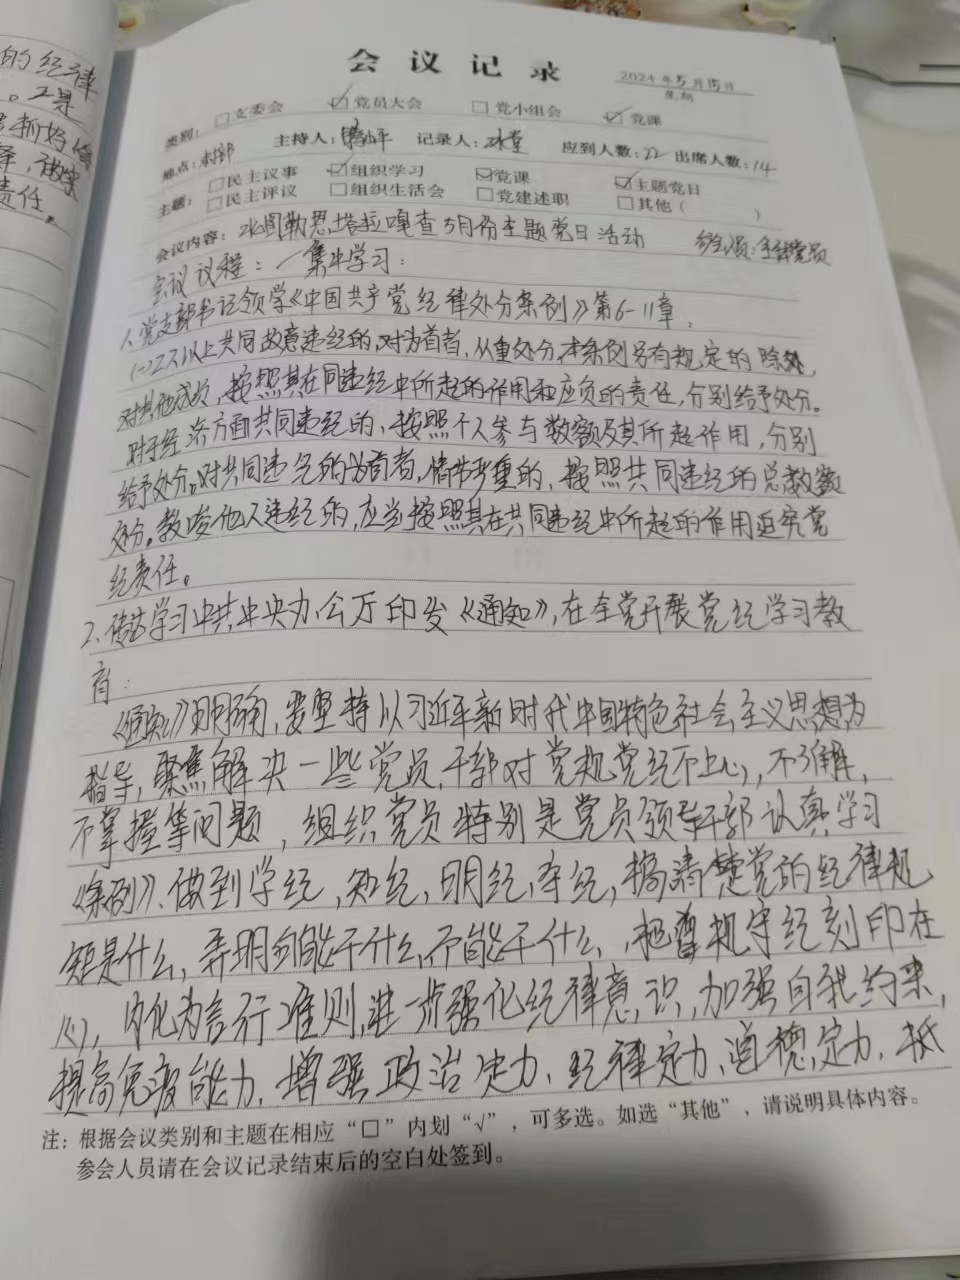 的纪律
。工是
责任。
会议记录
2024年5月15日
星期
类别: □支委会 ☑党员大会 □党小组会 ☑党课
地点: 村部 主持人: 记录人: 应到人数: 22 出席人数: 14
主题: □民主议事 ☑组织学习 ☑党课 ☑主题党日
□民主评议 □组织生活会 □党建述职 □其他( )
会议内容: 水图勒恩塔拉嘎查5月份主题党日活动 参会人员:全体党员
会议议程: 一集中学习:
1、党支部书记领学《中国共产党纪律处分条例》第6-11章。
(一)二人以上共同故意违纪的,对为首者,从重处分,本条例另有规定的除外,
对其他成员,按照其在同违纪中所起的作用和应负的责任,分别给予处分。
对于经济方面共同违纪的、按照个人参与数额及其所起作用,分别
给予处分。对共同违纪的为首者,情节严重的,按照共同违纪的总数额
处分。教唆他人违纪的,应当按照其在共同违纪中所起的作用追究党
纪责任。
2、传达学习中共中央办公厅印发《通知》,在全党开展党纪学习教
育:
《通知》明确,要坚持以习近平新时代中国特色社会主义思想为
指导,聚焦解决一些党员、干部对党规党纪不上心,不了解,
不掌握等问题,组织党员特别是党员领导干部认真学习
《条例》、做到学纪,知纪,明纪,守纪,搞清楚党的纪律规
矩是什么,弄明白能干什么,不能干什么,把遵规守纪刻印在
心,内化为言行准则,进一步强化纪律意识,加强自我约束,
提高免疫能力,增强政治定力,纪律定力,道德定力,抵
注: 根据会议类别和主题在相应“□”内划“√”,可多选。如选“其他”,请说明具体内容。
参会人员请在会议记录结束后的空白处签到。